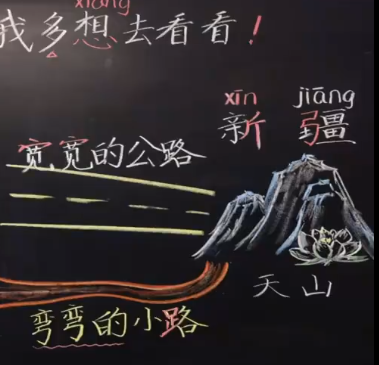 xiǎng
我多想去看看！
xīn jiāng
新疆
宽宽的公路
天山
弯弯的小路